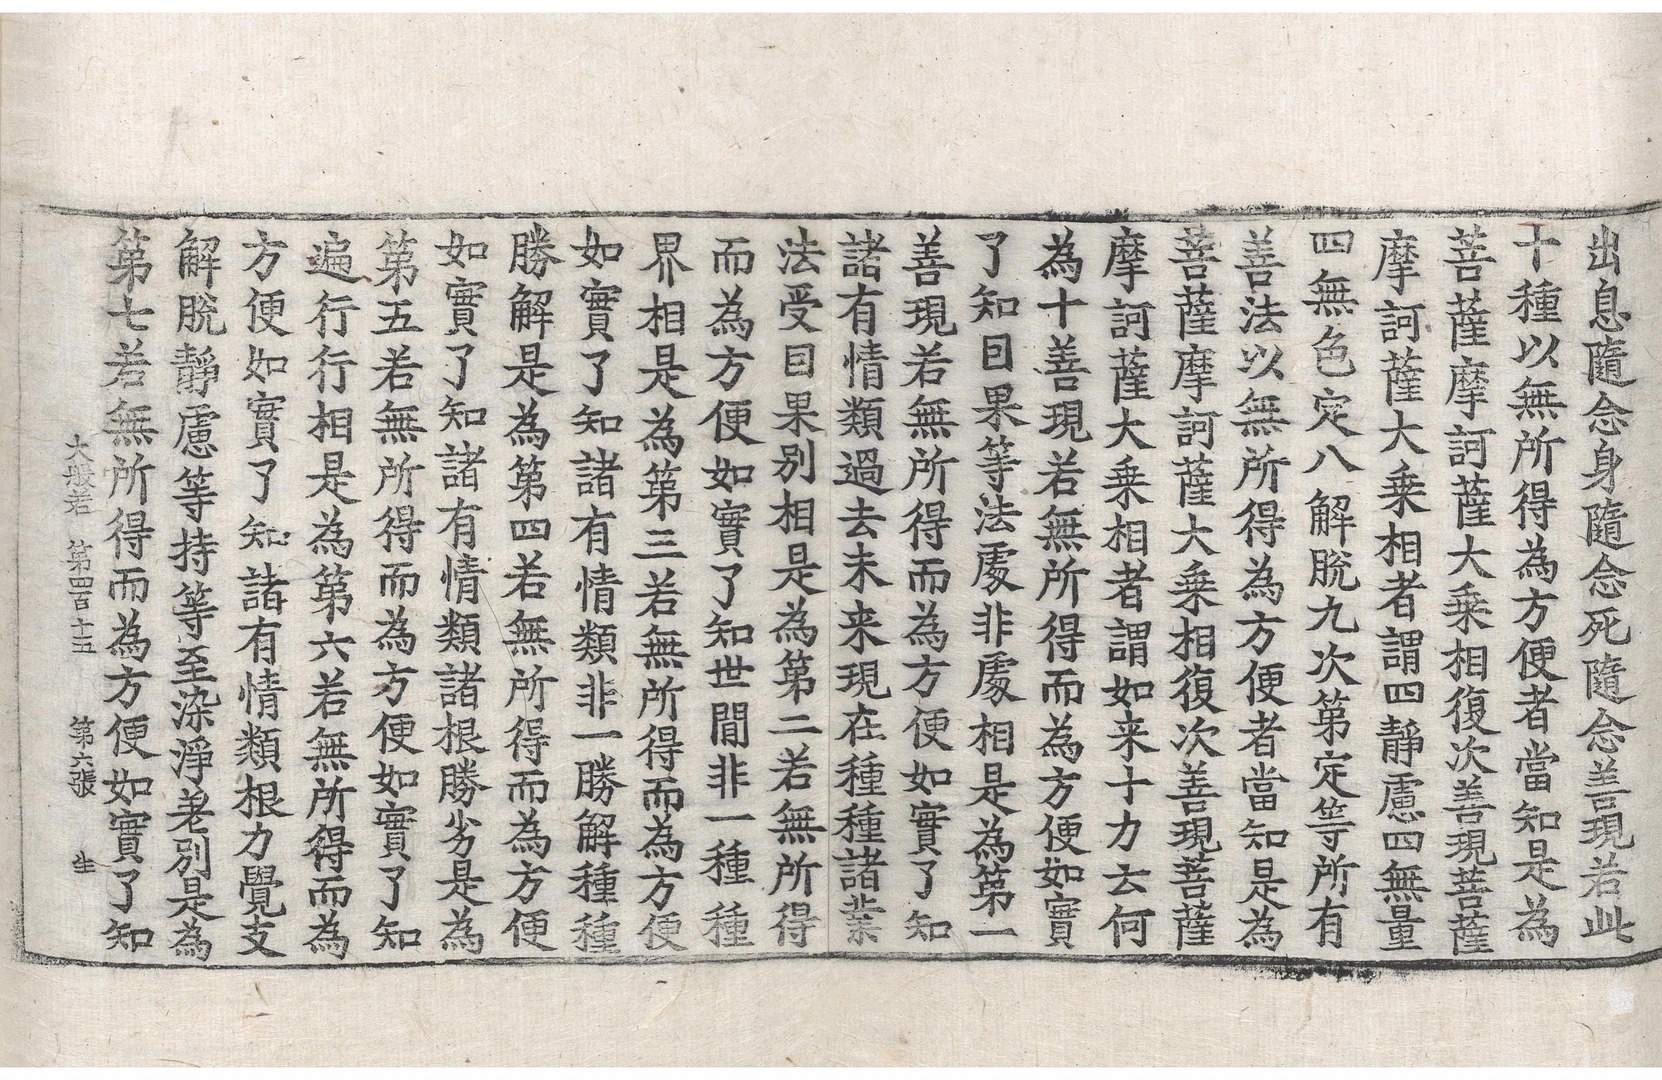 出息隨念身隨念死隨念善現若此
十種以無所得為方便者當知是為
菩薩摩訶薩大乗相復次善現菩薩
摩訶薩大乗相者謂四靜慮四無量
四無色定八解脫九次第定等所有
善法以無所得為方便者當知是為
菩薩摩訶薩大乗相復次善現菩薩
摩訶薩大乗相者謂如来十力云何
為十善現若無所得而為方便如實
了知囙果等法處非處相是為第一
善現若無所得而為方便如實了知
諸有情類過去未来現在種種諸業
法受囙果別相是為第二若無所得
而為方便如實了知世間非一種種
界相是為第三若無所得而為方便
如實了知諸有情類非一勝解種種
勝解是為第四若無所得而為方便
如實了知諸有情類諸根勝劣是為
第五若無所得而為方便如實了知
遍行行相是為第六若無所得而為
方便如實了知諸有情類根力覺支
解脫靜慮等持等至染淨差別是為
第七若無所得而為方便如實了知
大般若 第四百十五 第六張 生